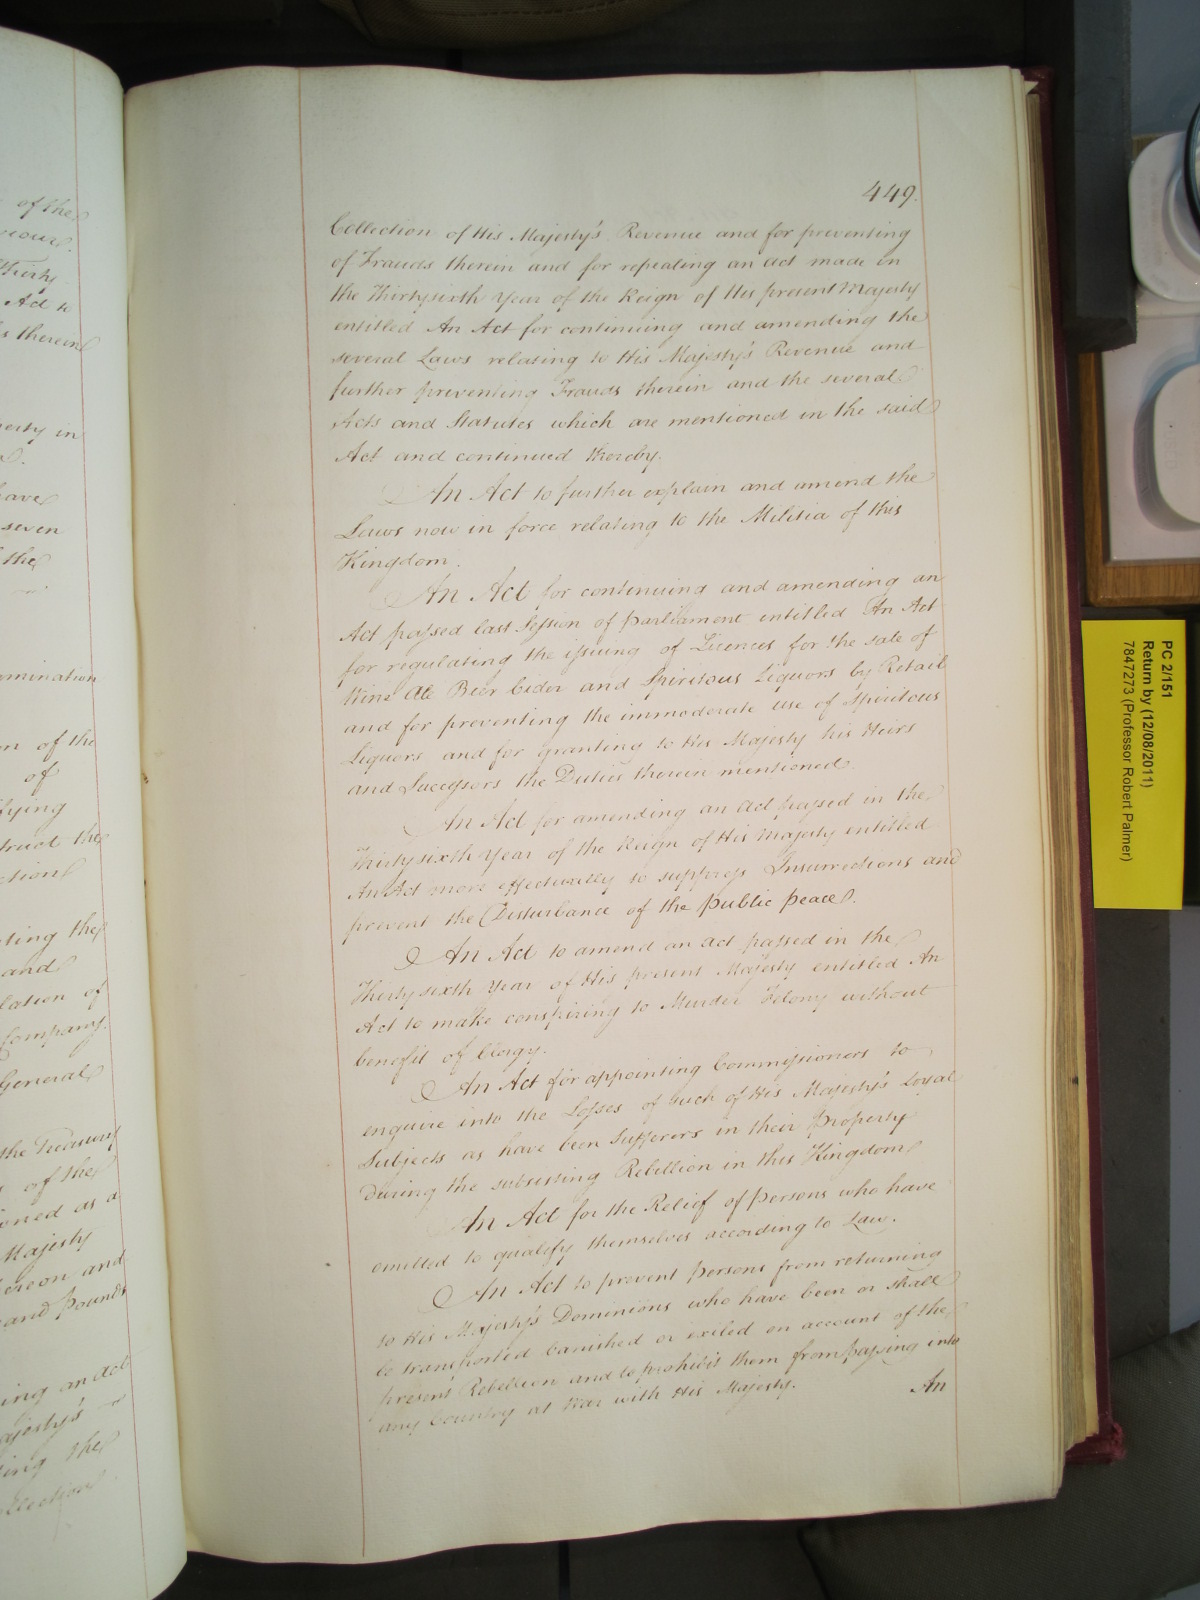 of the
Thirty
Act to
therein
erty in
have
seven
the
omination
on of the
of
fying
truct the
ction
ting the
and
lation of
Company.
General
the Treasury
of the
oned as a
Majesty
ereon and
and pounds
ing an act
ajesty's
ing the
ollection
449.
Collection of His Majesty's Revenue and for preventing
of Frauds therein and for repealing an act made in
the Thirtysixth Year of the Reign of His present Majesty
entitled An Act for continuing and amending the
several Laws relating to His Majesty's Revenue and
further preventing Frauds therein and the several
Acts and Statutes which are mentioned in the said
Act and continued thereby.
An Act to further explain and amend the
Laws now in force relating to the Militia of this
Kingdom.
An Act for continuing and amending an
Act passed last Session of parliament entitled An Act
for regulating the issuing of Licences for the sale of
Wine Ale Beer Cider and Spiritous Liquors by Retail
and for preventing the immoderate use of Spiritous
Liquors and for granting to His Majesty his Heirs
and Successors the Duties therein mentioned.
An Act for amending an act passed in the
Thirtysixth Year of the Reign of His Majesty entitled
An Act more effectually to suppress Insurrections and
prevent the Disturbance of the public peace.
An Act to amend an act passed in the
Thirtysixth Year of His present Majesty entitled An
Act to make conspiring to Murder Felony without
benefit of Clergy.
An Act for appointing Commissioners to
enquire into the Losses of such of His Majesty's Loyal
Subjects as have been Sufferers in their Property
during the subsisting Rebellion in this Kingdom
An Act for the Relief of persons who have
omitted to qualify themselves according to Law.
An Act to prevent persons from returning
to His Majesty's Dominions who have been or shall
be transported banished or exiled on account of the
present Rebellion and to prohibit them from passing into
any Country at War with His Majesty.
An
PC 2/151
Return by (12/08/2011)
7847273 (Professor Robert Palmer)